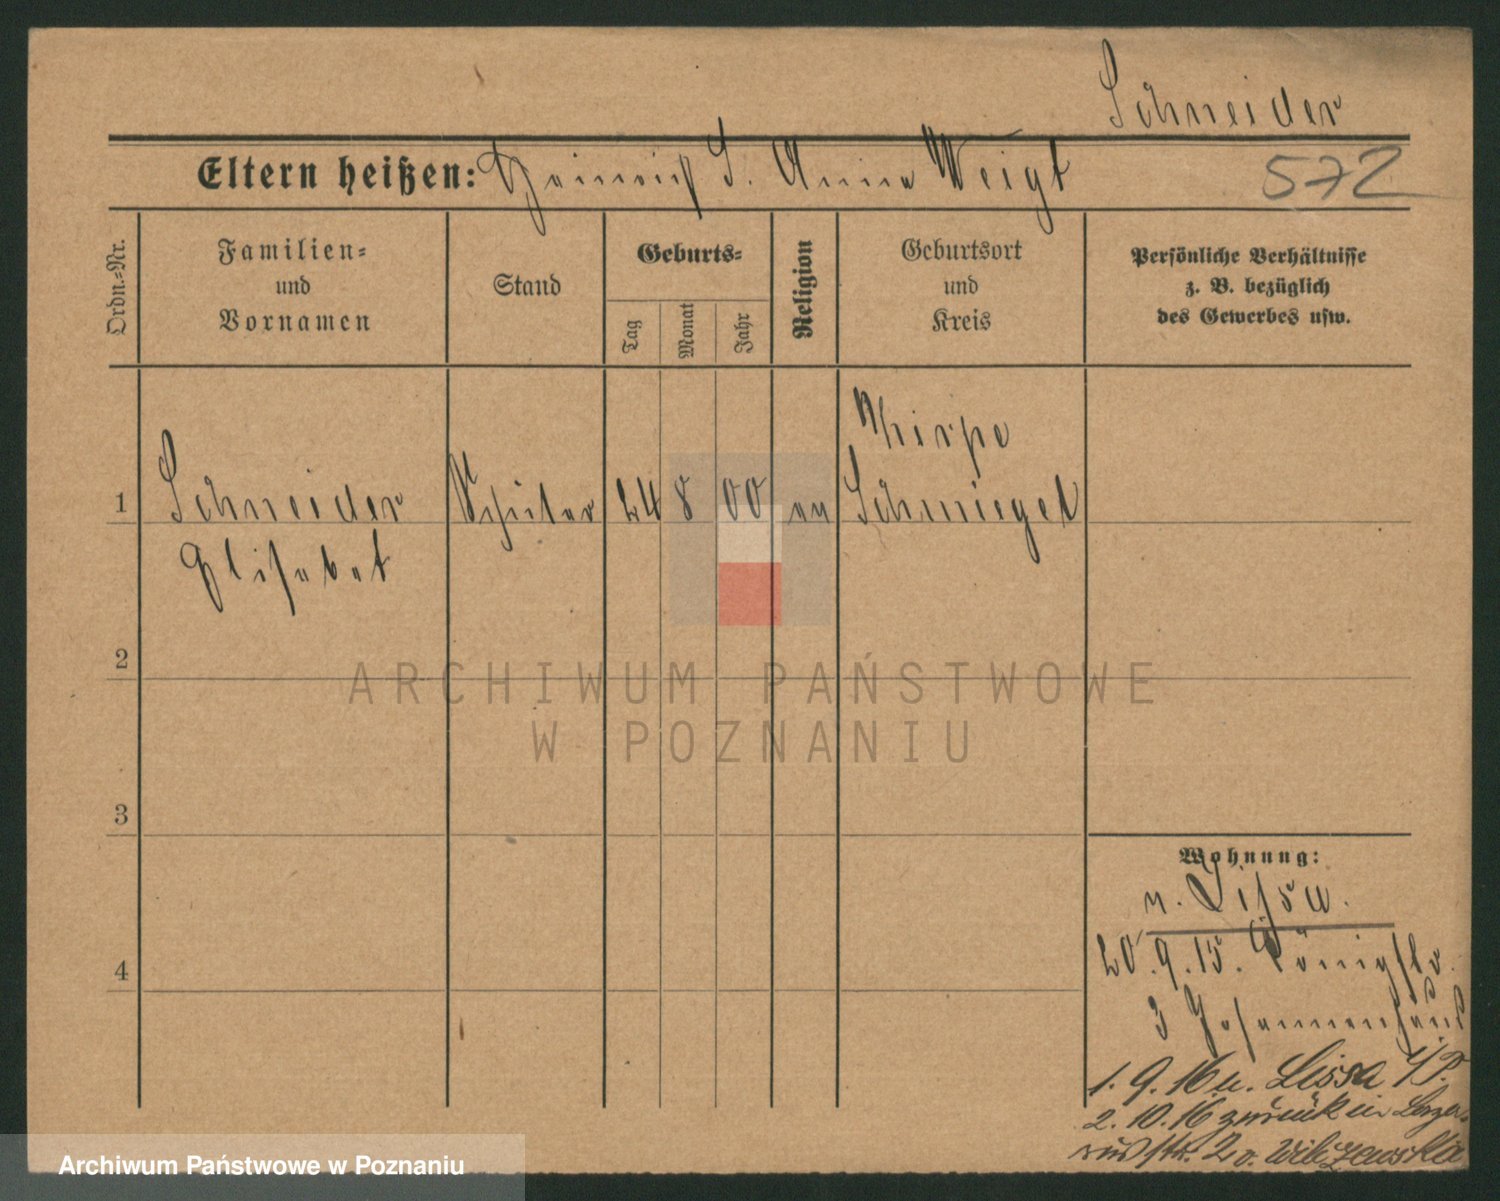 Schneider
Eltern heißen: Heinrich S. Anna Weigt
572
Ordn.-Nr.
Familien-
und
Vornamen
Stand
Geburts-
Tag
Monat
Jahr
Religion
Geburtsort
und
Kreis
Persönliche Verhältnisse
z. B. bezüglich
des Gewerbes usw.
1
Schneider
Elisabet
24 8 00
Schmiegel
2
3
4
Wohnung:
n. Lissa.
20.9.15. Königstr.
3 Johannenhaus
1.9.16 n. Lissa i/P.
2.10.16 zurück
str. 2 v.
ARCHIWUM PAŃSTWOWE
W POZNANIU
Archiwum Państwowe w Poznaniu